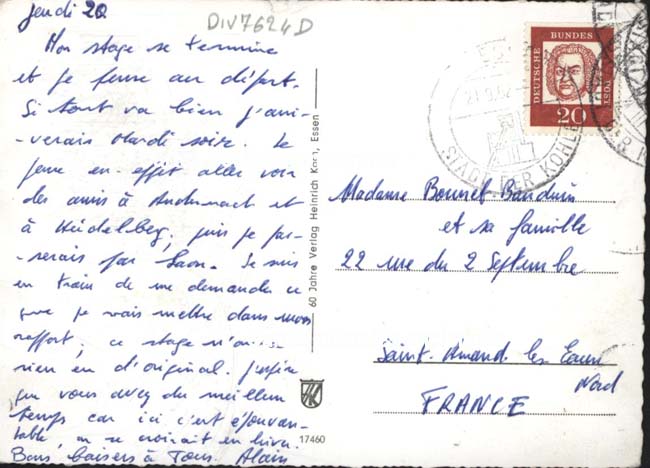 Jeudi 20
DIV7624D
Mon stage se termine
et je pense au départ.
Si tout va bien j'arri-
-verais Mardi soir. Je
pense en effet aller voir
des amis à Andernach et
à Heidelberg, puis je pas-
-serais par Laon. Je suis
en train de me demander ce
que je vais mettre dans mon
rapport; ce stage n'a
rien eu d'original. J'espère
que vous avez du meilleur
temps car ici c'est épouvan-
table, on se croirait en hiver.
Bons baisers à Tous. Alain
60 Jahre Verlag Heinrich Koch, Essen
17460
DEUTSCHE BUNDESPOST
20
STADT DER KOHLE
Madame Bonnet Bauduin
et sa famille
22 rue du 2 Septembre
Saint. Amand les Eaux
Nord
FRANCE